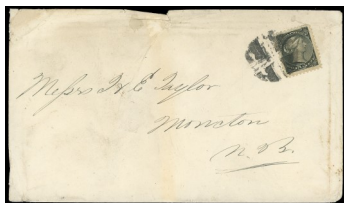 Messrs H. E. Taylor
Moncton
N.B.